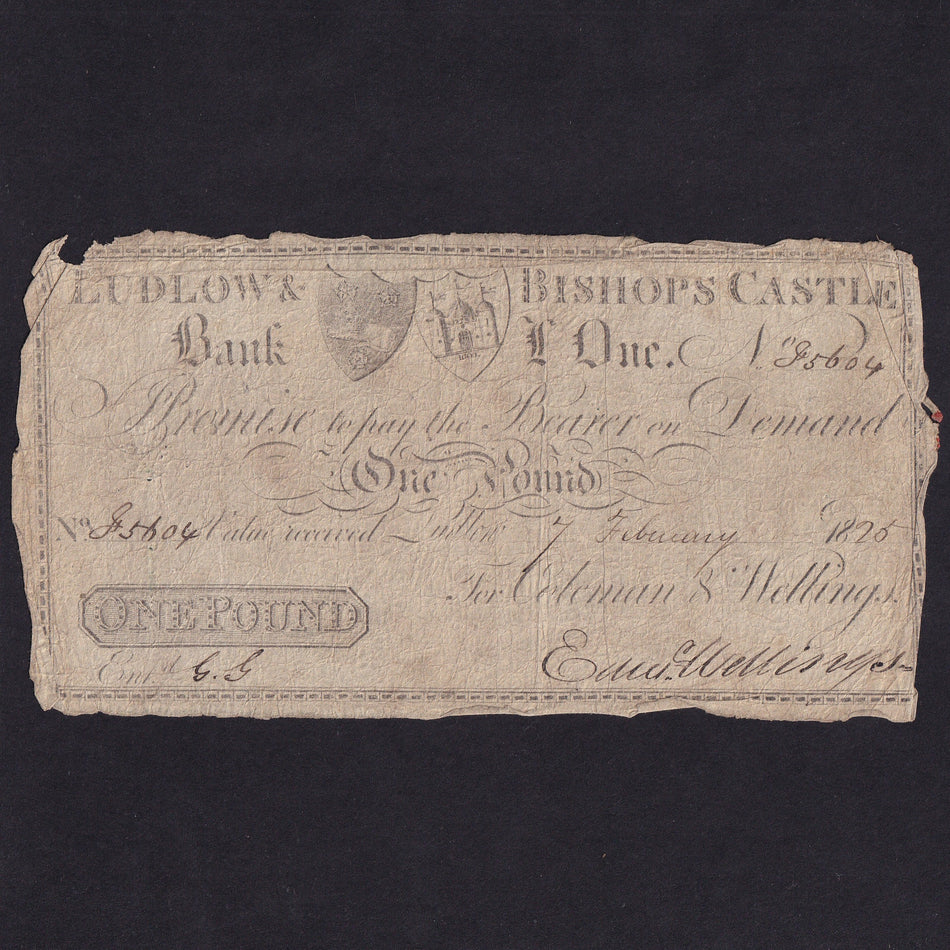 LUDLOW & BISHOPS CASTLE
Bank £ One. No F5604
I Promise to pay the Bearer on Demand
One Pound
No F5604 Value received Ludlow 7 February 1825
For Coleman & Wellings.
ONE POUND
Entd G.G Edwd Wellings